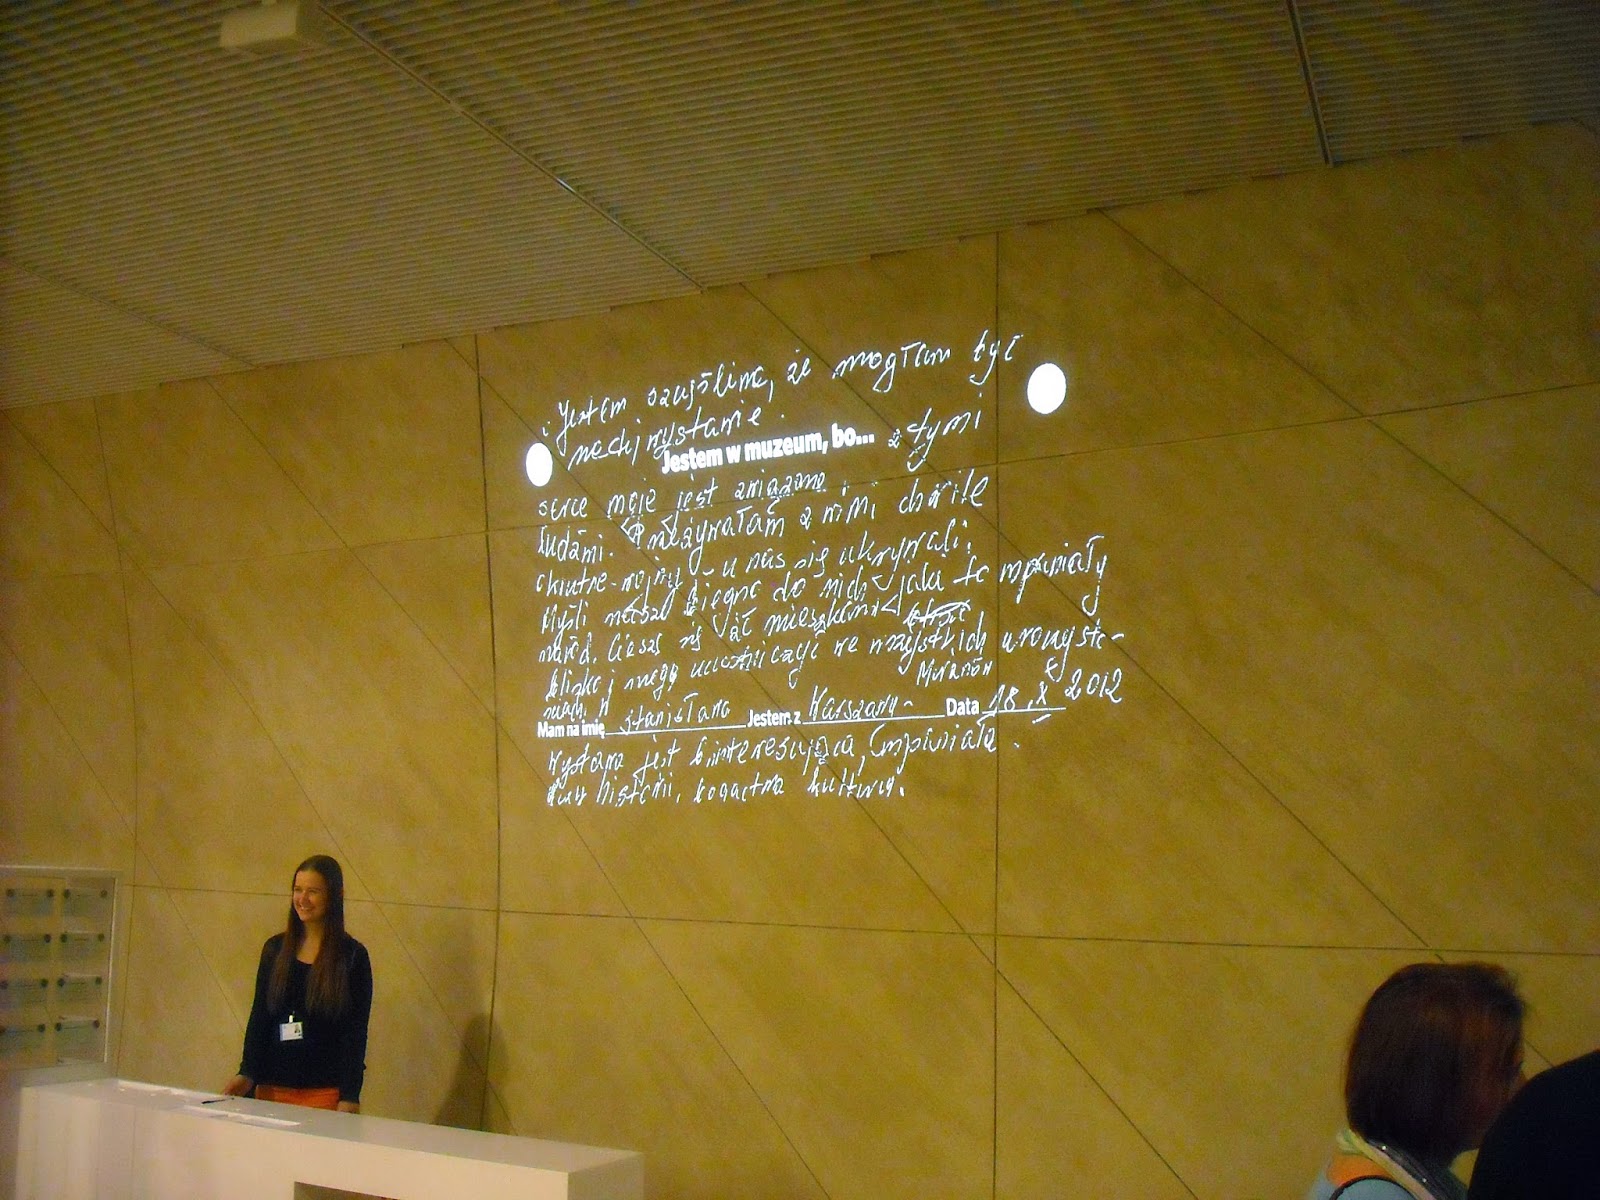 i Jestem szczęśliwa, że mogłam być
na tej wystawie.
Jestem w muzeum, bo... z tymi
serce moje jest związane
ludźmi. Przeżywałam z nimi chwile
okrutne-wojny - u nas się ukrywali.
Myśli nasze biegną do nich - jaki to wspaniały
naród. Cieszę się, że mieszkam
blisko i mogę uczestniczyć we wszystkich uroczysto-
ściach. Muranów
Mam na imię Stanisława Jestem z Warszawy - Data 18.X 2012
Wystawa jest b. interesująca, wspaniała.
historii, bogactwa kultury.